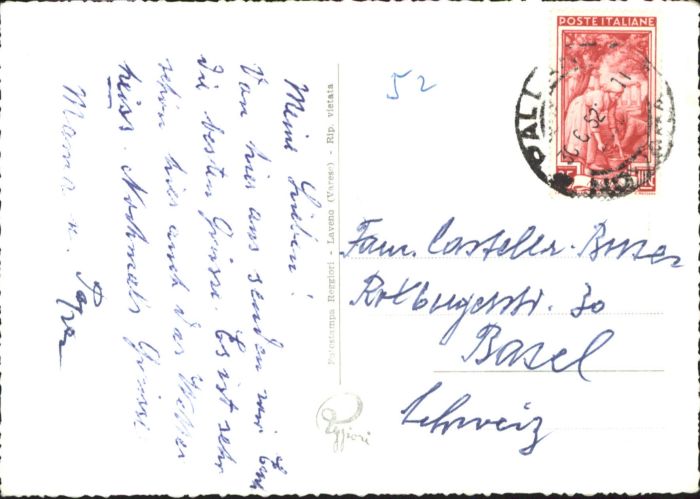 Meine Lieben!
Von hier aus senden wir Euch
die besten Grüsse. Es ist sehr
schön hier auch das Wetter
heiss. Nochmals Grüsse
Mama u. Papa
Fotostampa Reggiori - Laveno (Varese) - Rip. vietata
Reggiori
52
POSTE ITALIANE
Fam. Casteller-Buser
30
Basel
Schweiz